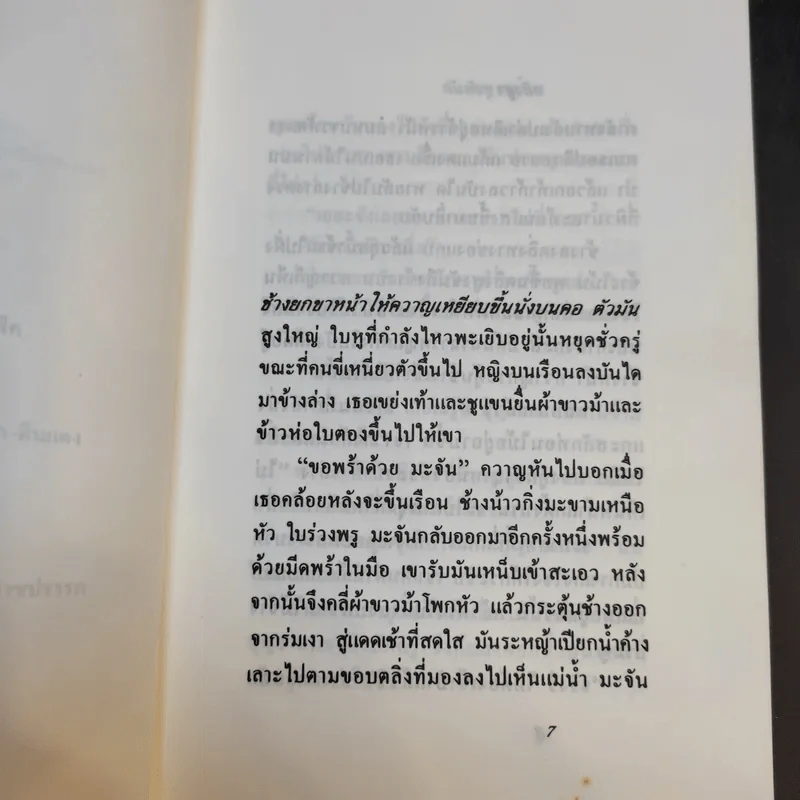 ช้างยกขาหน้าให้ควาญเหยียบขึ้นนั่งบนคอ ตัวมัน
สูงใหญ่ ใบหูที่กำลังไหวพะเยิบอยู่นั้นหยุดชั่วครู่
ขณะที่คนขี่เหนี่ยวตัวขึ้นไป หญิงบนเรือนลงบันได
มาข้างล่าง เธอเขย่งเท้าและชูแขนยื่นผ้าขาวม้าและ
ข้าวห่อใบตองขึ้นไปให้เขา
“ขอพร้าด้วย มะจัน” ควาญหันไปบอกเมื่อ
เธอคล้อยหลังจะขึ้นเรือน ช้างน้าวกิ่งมะขามเหนือ
หัว ใบร่วงพรู มะจันกลับออกมาอีกครั้งหนึ่งพร้อม
ด้วยมีดพร้าในมือ เขารับมันเหน็บเข้าสะเอว หลัง
จากนั้นจึงคลี่ผ้าขาวม้าโพกหัว แล้วกระตุ้นช้างออก
จากร่มเงา สู่แดดเช้าที่สดใส มันระหญ้าเปียกน้ำค้าง
เลาะไปตามขอบตลิ่งที่มองลงไปเห็นแม่น้ำ มะจัน
7